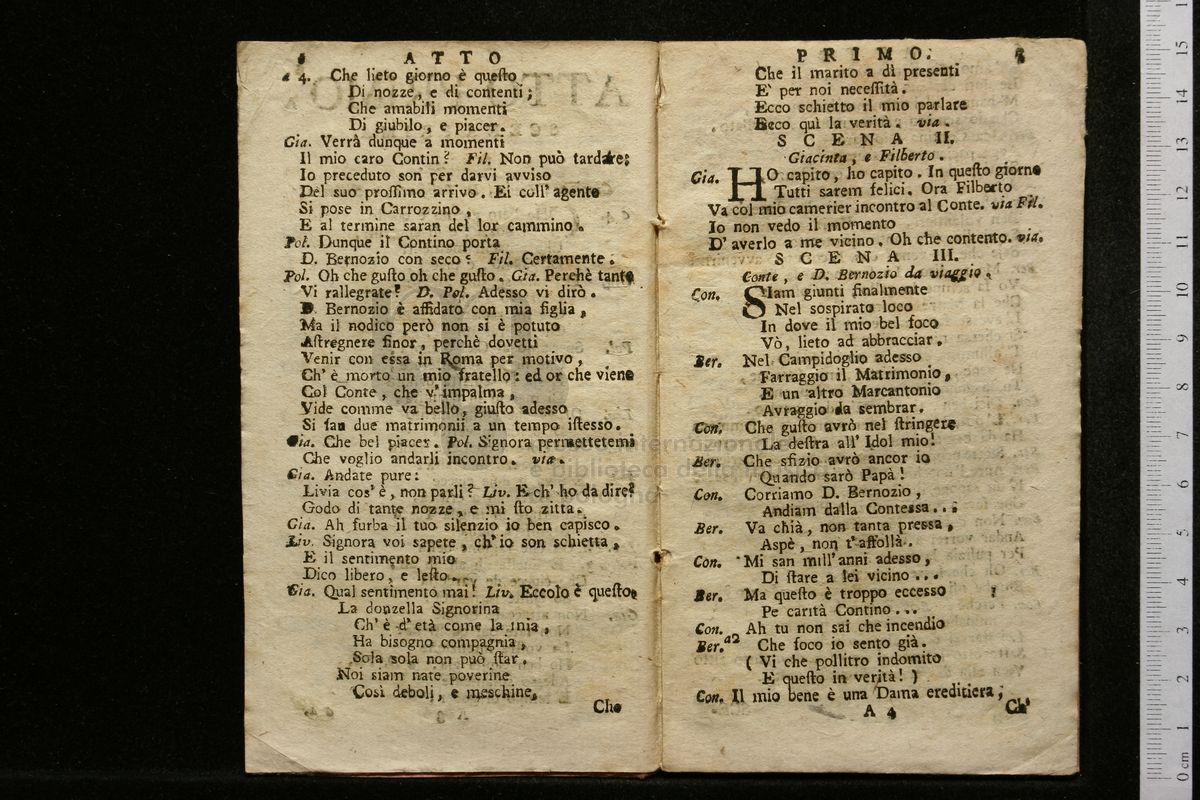 ATTO
a 4. Che lieto giorno è queſto
Di nozze, e di contenti;
Che amabili momenti
Di giubilo, e piacer.
Gia. Verrà dunque a momenti
Il mio caro Contin? Fil. Non può tardare;
Io preceduto son per darvi avviso
Del suo proſſimo arrivo. Ei coll' agente
Si pose in Carrozzino,
E al termine saran del lor cammino.
Pol. Dunque il Contino porta
D. Bernozio con seco? Fil. Certamente.
Pol. Oh che guſto oh che guſto. Gia. Perchè tanto
Vi rallegrate? D. Pol. Adesso vi dirò.
D. Bernozio è affidato con mia figlia,
Ma il nodico però non si è potuto
Aſtregnere finor, perchè dovetti
Venir con essa in Roma per motivo,
Ch' è morto un mio fratello: ed or che viene
Col Conte, che v' impalma,
Vide comme va bello, giuſto adesso
Si fan due matrimonii a un tempo iſtesso.
Gia. Che bel piacer. Pol. Signora permettetemi
Che voglio andarli incontro. via.
Gia. Andate pure:
Livia cos' è, non parli? Liv. E ch' ho da dire?
Godo di tante nozze, e mi ſto zitta.
Gia. Ah furba il tuo silenzio io ben capisco.
Liv. Signora voi sapete, ch' io son schietta,
E il sentimento mio
Dico libero, e leſto.
Gia. Qual sentimento mai! Liv. Eccolo è queſto.
La donzella Signorina
Ch' è d' età come la mia,
Ha bisogno compagnia,
Sola sola non può ſtar.
Noi siam nate poverine
Così deboli, e meschine,
Che
PRIMO.
Che il marito a dì presenti
E' per noi neceſſità.
Ecco schietto il mio parlare
Ecco quì la verità. via.
SCENA II.
Giacinta, e Filberto.
Gia. HO capito, ho capito. In queſto giorno
Tutti sarem felici. Ora Filberto
Va col mio camerier incontro al Conte. via Fil.
Io non vedo il momento
D' averlo a me vicino. Oh che contento. via.
SCENA III.
Conte, e D. Bernozio da viaggio.
Con. SIam giunti finalmente
Nel sospirato loco
In dove il mio bel foco
Vò, lieto ad abbracciar.
Ber. Nel Campidoglio adesso
Farraggio il Matrimonio,
E un altro Marcantonio
Avraggio da sembrar.
Con. Che guſto avrò nel ſtringere
La deſtra all' Idol mio!
Ber. Che sfizio avrò ancor io
Quando sarò Papà!
Con. Corriamo D. Bernozio,
Andiam dalla Contessa...
Ber. Va chià, non tanta pressa,
Aspè, non t'affollà.
Con. Mi san mill' anni adesso,
Di ſtare a lei vicino...
Ber. Ma queſto è troppo eccesso
Pe carità Contino...
Con. Ah tu non sai che incendio
Ber. a2 Che foco io sento già.
( Vi che pollitro indomito
E queſto in verità! )
Con. Il mio bene è una Dama ereditiera,
A 4
Ch'